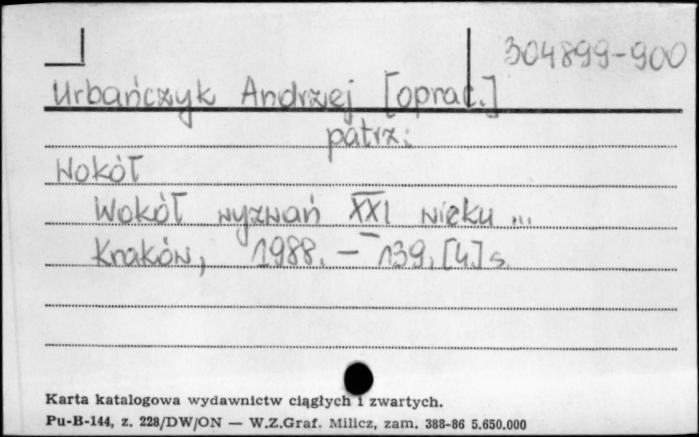 304899-900
Urbańczyk Andrzej [oprac.]
patrz:
Wokół
Wokół wyzwań XXI wieku ...
Kraków, 1988. - 139, [4] s.
Karta katalogowa wydawnictw ciągłych i zwartych.
Pu-B-144, z. 228/DW/ON — W.Z.Graf. Milicz, zam. 388-86 5.650.000